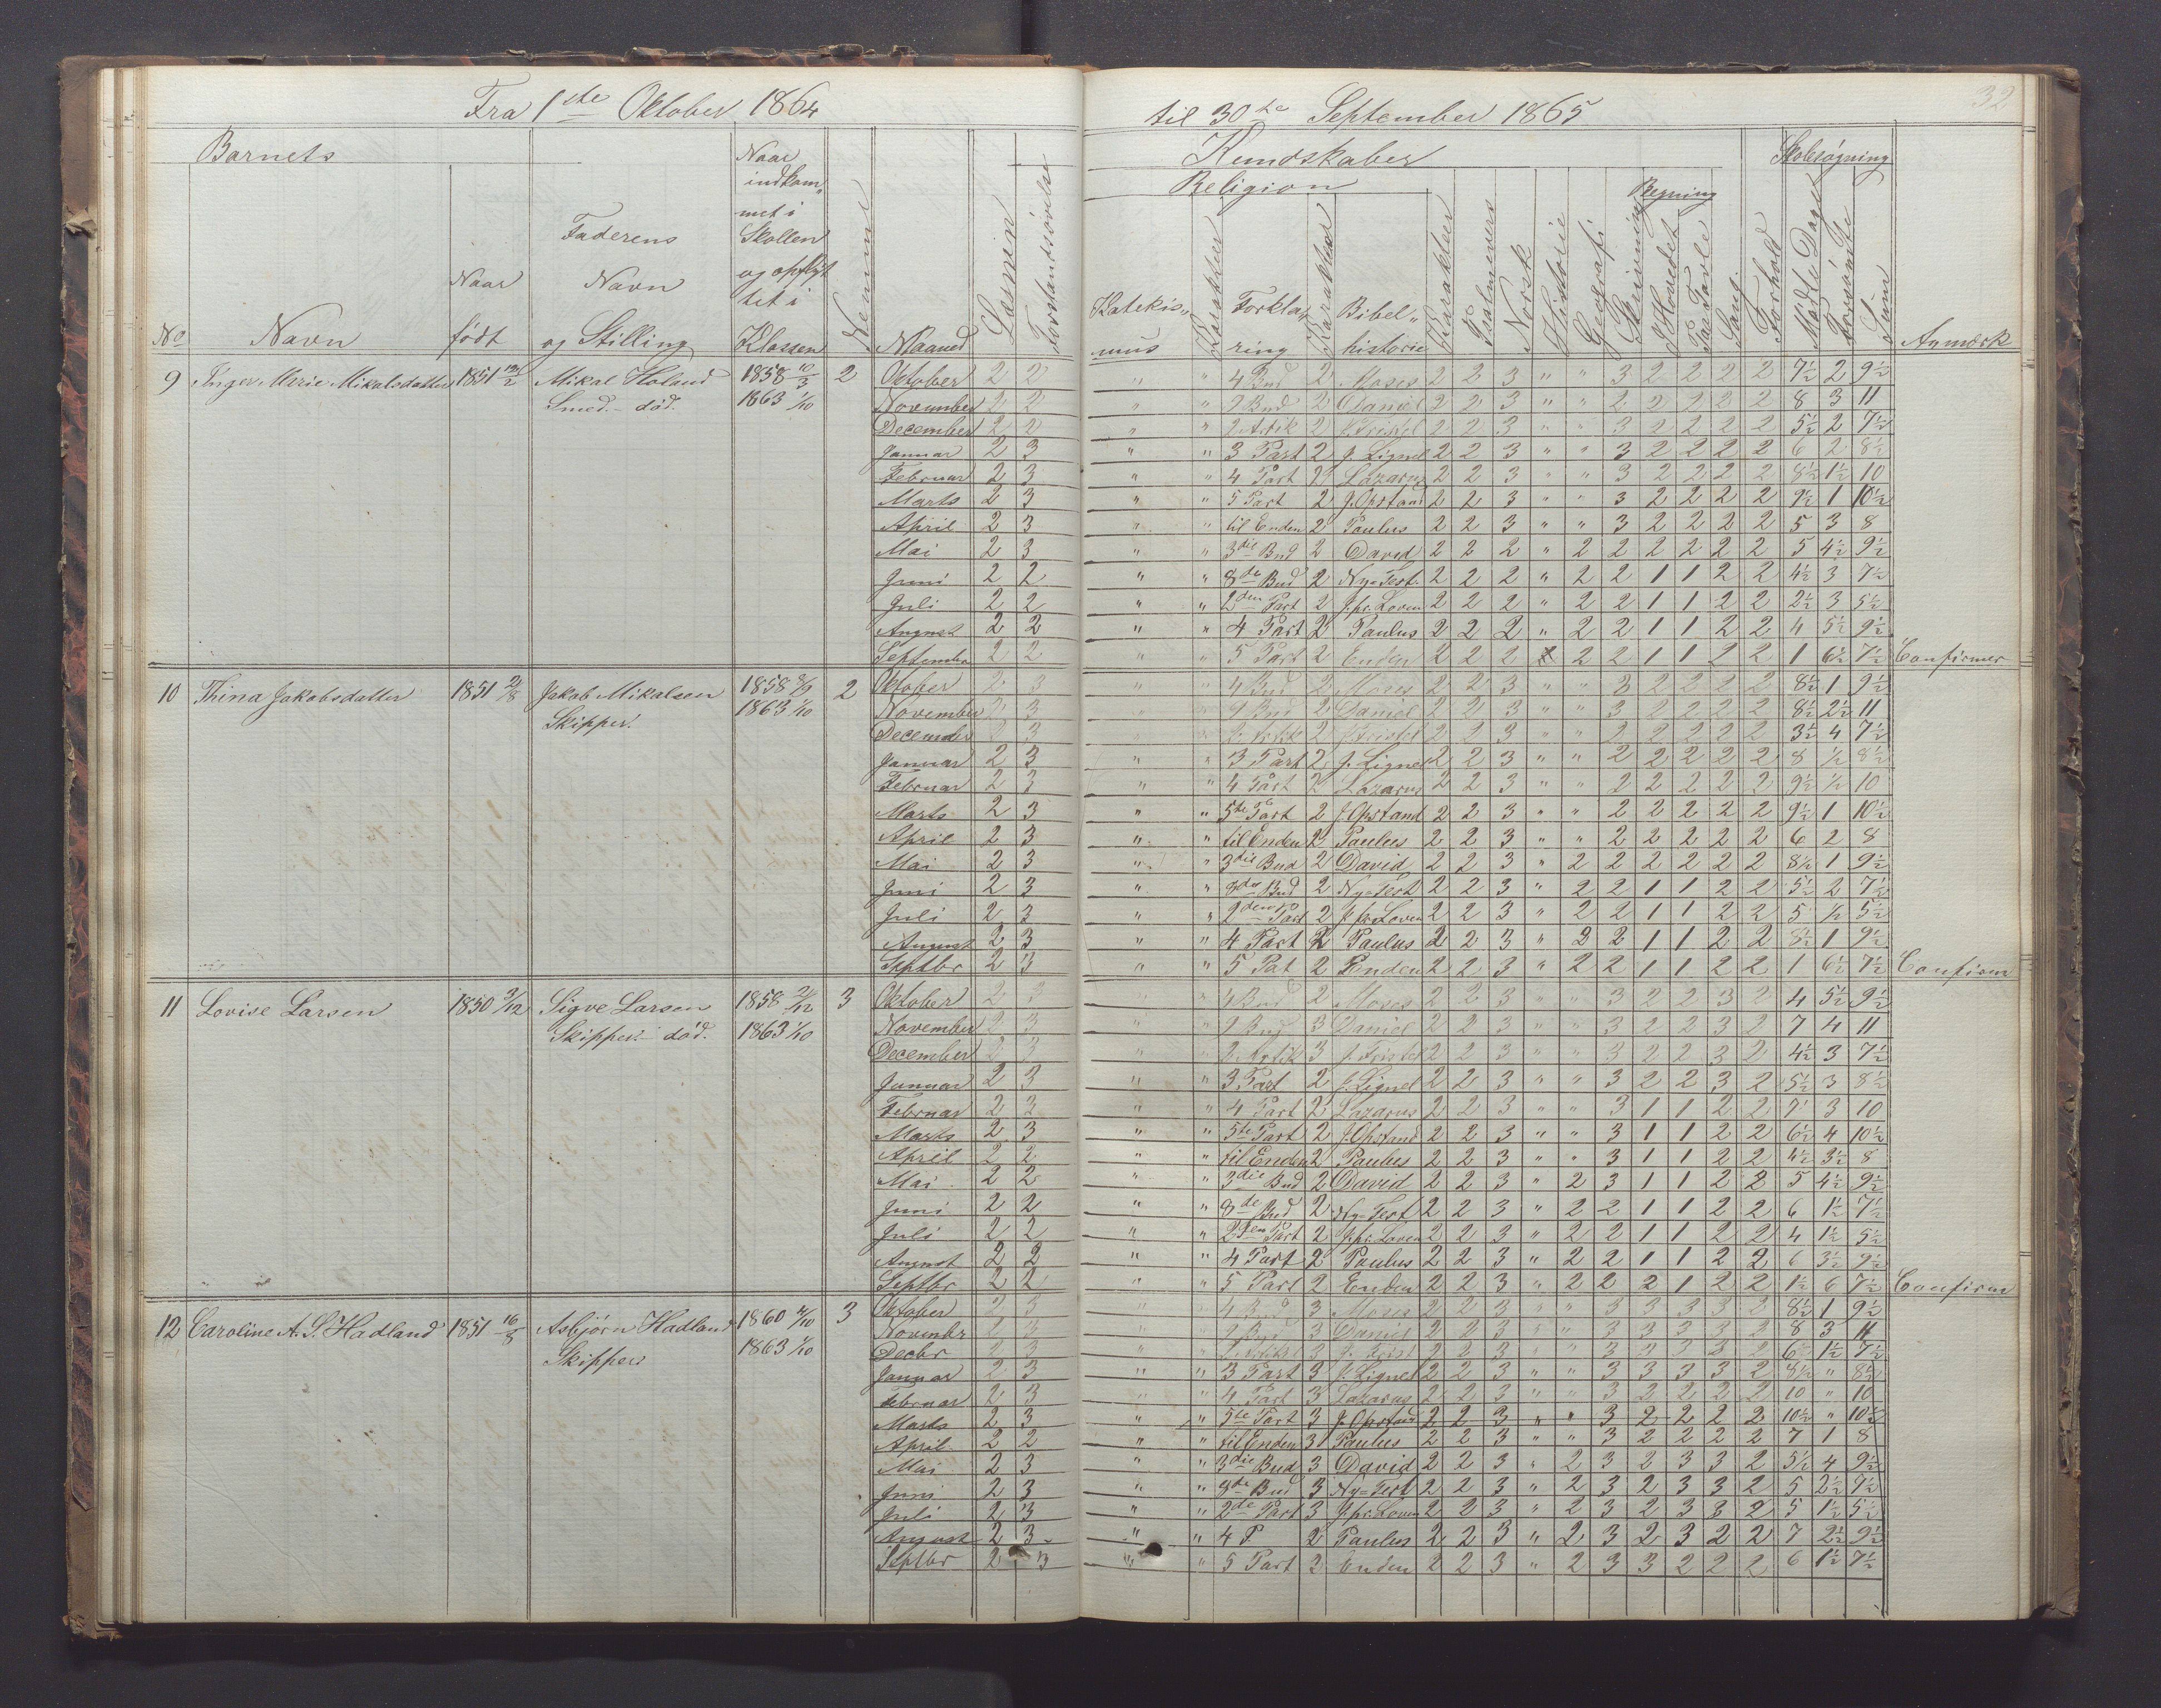 Fra 1ste Oktober 1864 til 30te September 1865
32
Barnets
Kundskaber
Skolesøgning
Religion
Regning
No
Navn
Naar født
Faderens Navn og Stilling
Naar indkommet i Skollen og opflyttet i Klassen
Nemme
Maaned
Læsning
Forstandsøvelse
Katekismus
Karakter
Forklaring
Karakter
Bibelhistorie
Karakter
Psalmevers
Norsk
Historie
Geografi
Skrivning
I Hovedet
Paa Tavle
Sang
Forhold
Mødte Dage
Forsømte
Sum
Anmærk
9 Inger Marie Mikalsdatter 1851 Mikal Holand Smed. død. 1858 10/3 1863 1/10 2
Oktober 2 2 " " 4 Bud 2 Moses 2 2 3 " " 3 2 2 2 2 7½ 2 9½
November 2 2 " " 9 Bud 2 Daniel 2 2 3 " " 2 2 2 2 2 8 3 11
December 2 2 " " 2 Artik 2 J. Fristel 2 2 3 " " 3 2 2 2 2 5½ 2 7½
Januar 2 3 " " 3 Part 2 J. Lignel 2 2 3 " " 3 2 2 2 2 6 2 8½
Februar 2 3 " " 4 Part 2 Lazarus 2 2 3 " " 3 2 2 2 2 8½ 1½ 10
Marts 2 3 " " 5 Part 2 J. Opstand 2 2 3 " " 3 2 2 2 2 9½ 1 10½
April 2 3 " " til Enden 2 Paulus 2 2 3 " " 3 2 2 2 2 5 3 8
Mai 2 3 " " 3die Bud 2 David 2 2 2 " 2 2 2 2 2 2 5 4½ 9½
Juni 2 2 " " 8de Bud 2 Ny=Test. 2 2 2 " 2 2 1 1 2 2 4½ 3 7½
Juli 2 2 " " 2den Part 2 J. pr. Loven 2 2 2 " 2 2 1 1 2 2 2½ 3 5½
August 2 2 " " 4 Part 2 Paulus 2 2 2 " 2 2 1 1 2 2 4 5½ 9½
September 2 2 " " 5 Part 2 Enden 2 2 2 2 2 1 1 2 2 1 6½ 7½ Confirmer
10 Thina Jakobsdatter 1851 Jakob Mikalsen Skipper. 1858 8/9 1863 1/10 2
Oktober 2 3 " " 4 Bud 2 Moses 2 2 3 " " 2 2 2 2 2 8½ 1 9½
November 2 3 " " 9 Bud 2 Daniel 2 2 3 " " 3 2 2 2 2 8½ 2½ 11
December 2 3 " " 2 Artik 2 J Fristel 2 2 3 " " 2 2 2 2 2 3½ 4 7½
Januar 2 3 " " 3 Part 2 J. Lignel 2 2 3 " " 2 2 2 2 2 8 ½ 8½
Februar 2 3 " " 4 Part 2 Lazarus 2 2 3 " " 2 2 2 2 2 9½ ½ 10
Marts 2 3 " " 5te Part 2 J. Opstand 2 2 3 " " 2 2 2 2 2 9½ 1 10½
April 2 3 " " til Enden 2 Paulus 2 2 3 " " 2 2 2 2 2 6 2 8
Mai 2 3 " " 3die Bud 2 David 2 2 3 " 2 2 2 2 2 2 8½ 1 9½
Juni 2 3 " " 8de Bud 2 Ny=Test 2 2 3 " 2 2 1 1 2 2 5½ 2 7½
Juli 2 3 " " 2den Part 2 J. pr. Loven 2 2 3 " 2 2 1 1 2 2 5 ½ 5½
August 2 3 " " 4 Part 2 Paulus 2 2 3 " 2 2 1 1 2 2 8½ 1 9½
Septbr 2 3 " " 5 Pat 2 Enden 2 2 3 " 2 2 1 1 2 2 1 6½ 7½ Confirm
11 Lovise Larsen 1850 Sigve Larsen Skipper. død. 1858 1863 1/10 3
Oktober 2 3 " " 4 Bud 2 Moses 2 2 3 " " 3 2 2 3 2 4 5½ 9½
November 2 3 " " 9 Bud 3 Daniel 2 2 3 " " 3 2 2 3 2 7 4 11
December 2 3 " " 2 Artik 3 J. Fristel 2 2 3 " " 3 2 2 3 2 4½ 3 7½
Januar 2 3 " " 3 Part 2 J. Lignel 2 2 3 " " 3 2 2 3 2 5½ 3 8½
Februar 2 3 " " 4 Part 2 Lazarus 2 2 3 " " 3 1 1 2 2 7 3 10
Marts 2 3 " " 5te Part 2 J. Opstand 2 2 3 " " 3 1 1 2 2 6½ 4 10½
April 2 2 " " til Enden 2 Paulus 2 2 3 " " 3 1 1 2 2 4½ 3½ 8
Mai 2 2 " " 3die Bud 2 David 2 2 3 " 2 3 1 1 2 2 5 4½ 9½
Juni 2 2 " " 8de Bud 2 Ny=Test 2 2 3 " 2 2 1 1 2 2 6 1½ 7½
Juli 2 2 " " 2den Part 2 J. pr. Loven 2 2 3 " 2 2 1 1 2 2 4 1½ 5½
August 2 2 " " 4 Part 2 Paulus 2 2 3 " 2 2 1 1 2 2 6 3½ 9½
Septbr 2 2 " " 5 Part 2 Enden 2 2 3 " 2 2 2 1 2 2 1½ 6 7½ Confirm
12 Caroline A. S. Hadland 1851 16/8 Asbjørn Hadland Skipper 1860 1863 1/10 3
Oktober 2 3 " " 4 Bud 3 Moses 2 2 3 " " 3 3 3 3 2 8½ 1 9½
Novembr 2 3 " " 9 Bud 3 Daniel 2 2 3 " " 3 3 3 3 2 8 3 11
Decbr 2 3 " " 2 Artikl 3 J. Frist 2 2 3 " " 3 3 3 3 2 6 1½ 7½
Januar 2 3 " " 3 Part 3 J. Lignel 2 2 3 " " 3 3 3 3 2 8½ " 8½
Februar 2 3 " " 4 Part 3 Lazarus 2 2 3 " " 3 2 2 2 2 10 " 10
Marts 2 3 " " 5te Part 3 J. Opstand 2 2 3 " " 3 2 2 2 2 10½ " 10½
April 2 2 " " til Enden 3 Paulus 2 2 3 " " 3 2 2 2 2 7 1 8
Mai 2 3 " " 3die Bud 3 David 2 2 3 " 2 3 2 3 3 2 5½ 4 9½
Juni 2 3 " " 8de Bud 3 Ny=Test 2 2 3 " 2 3 2 3 3 2 5 2½ 7½
Juli 2 3 " " 2de Part 3 J. pr. Loven 2 2 3 " 2 3 2 3 3 2 5 1½ 5½
August 2 3 " " 4 P 2 Paulus 2 2 3 " 2 3 2 3 2 2 7 2½ 9½
Septbr 2 3 " " 5 Part 2 Enden 2 2 3 " 2 3 3 2 2 2 6 1½ 7½